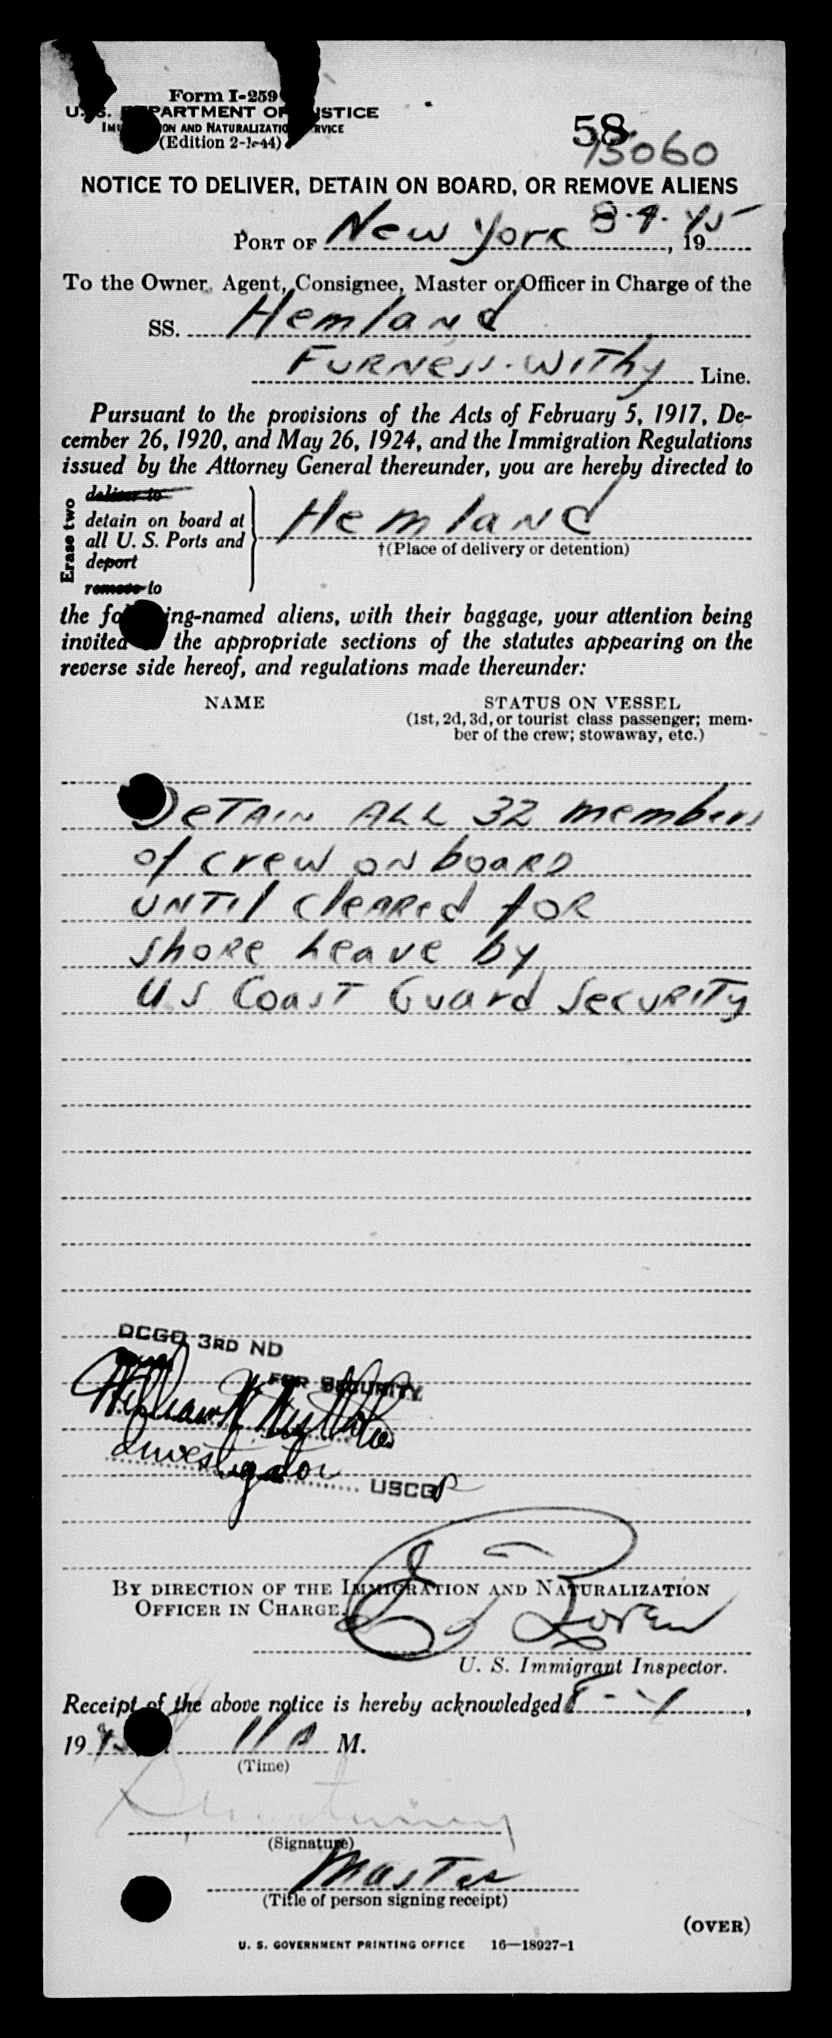 Form I-259
U. S. DEPARTMENT OF JUSTICE
IMMIGRATION AND NATURALIZATION SERVICE
(Edition 2-1-44)
58
75060
NOTICE TO DELIVER, DETAIN ON BOARD, OR REMOVE ALIENS
PORT OF New York 8-4-45, 19
To the Owner, Agent, Consignee, Master or Officer in Charge of the
SS. Hemland
FURNESS-WITHY Line.
Pursuant to the provisions of the Acts of February 5, 1917, De-
cember 26, 1920, and May 26, 1924, and the Immigration Regulations
issued by the Attorney General thereunder, you are hereby directed to
Erase two
deliver to
detain on board at
all U. S. Ports and
deport
remove to
Hemland
†(Place of delivery or detention)
the following-named aliens, with their baggage, your attention being
invited to the appropriate sections of the statutes appearing on the
reverse side hereof, and regulations made thereunder:
NAME STATUS ON VESSEL
(1st, 2d, 3d, or tourist class passenger; mem-
ber of the crew; stowaway, etc.)
DETAIN ALL 32 members
of crew on board
UNTIL cleared for
shore Leave by
U.S Coast Guard Security
DCGO 3RD ND
FOR SECURITY
William
Investigator
USCGR
BY DIRECTION OF THE IMMIGRATION AND NATURALIZATION
OFFICER IN CHARGE.
U. S. Immigrant Inspector.
Receipt of the above notice is hereby acknowledged 8-4,
19 45 11 A M.
(Time)
(Signature)
Master
(Title of person signing receipt)
(OVER)
U. S. GOVERNMENT PRINTING OFFICE 16—18927-1